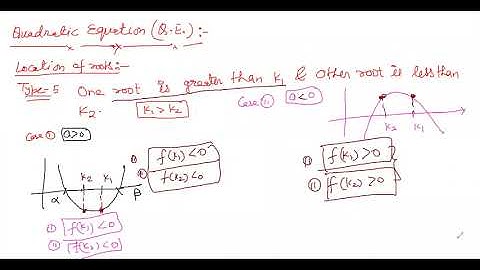 Quadratic Equation (Q.E.) :-
Location of roots:-
Type-5 One root is greater than K₁ & other root is less than
K₂. K₁>K₂ Case ⑪ a<0
Case ① a>0
K₂ K₁
① f(K₁)<0
⑪ f(K₂)<0
α K₂ K₁ β
① f(K₁)<0
⑪ f(K₂)<0
① f(K₁)>0
⑪ f(K₂)>0